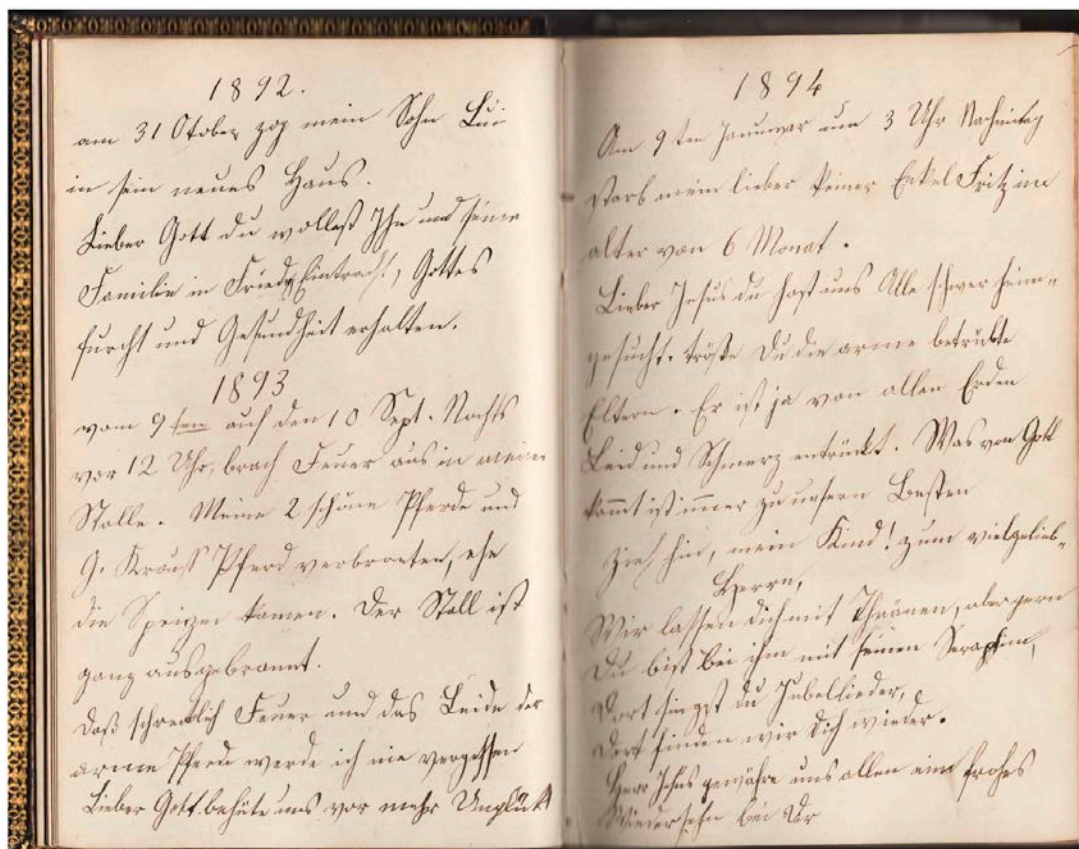 1892.
am 31 Otober zog mein Sohn
in sein neues Haus.
Lieber Gott du wollest Ihn und seine
Familie in Friede, Eintracht, Gottes
furcht und Gesundheit erhalten.
1893
vom 9ten auf den 10 Sept. Nachts
vor 12 Uhr, brach Feuer aus in meine
Stalle. Meine 2 schöne Pferde und
G. Krauß Pferd verbranten, ehe
die Sprizen kamen. Der Stall ist
ganz ausgebrannt.
Daß schreklich Feuer und das Leide der
arme Pferde werde ich nie vergessen
Lieber Gott behüte uns vor mehr Unglück
1894
Am 9ten Januwar um 3 Uhr Nachmitag
starb mein lieber kleiner Enkel Fritz im
alter von 6 Monat.
Lieber Jesus du hast uns Alle schwer heim-
gesucht. tröste Du die arme betrübte
Eltern. Er ist ja von allen Erden
Leid und Schmerz entrückt. Was von Gott
kommt ist immer zu unsern Besten
Zieh hin, mein Kind! zum vielgelieb-
Herrn,
Wir lassen dich mit Thränen, aber gern
Du bist bei ihm mit seinen Seraphim,
Dort singst du Jubellieder,
Dort finden wir dich wieder.
Herr Jesus gewähre uns allen ein frohes
Wiedersehn bei Dir